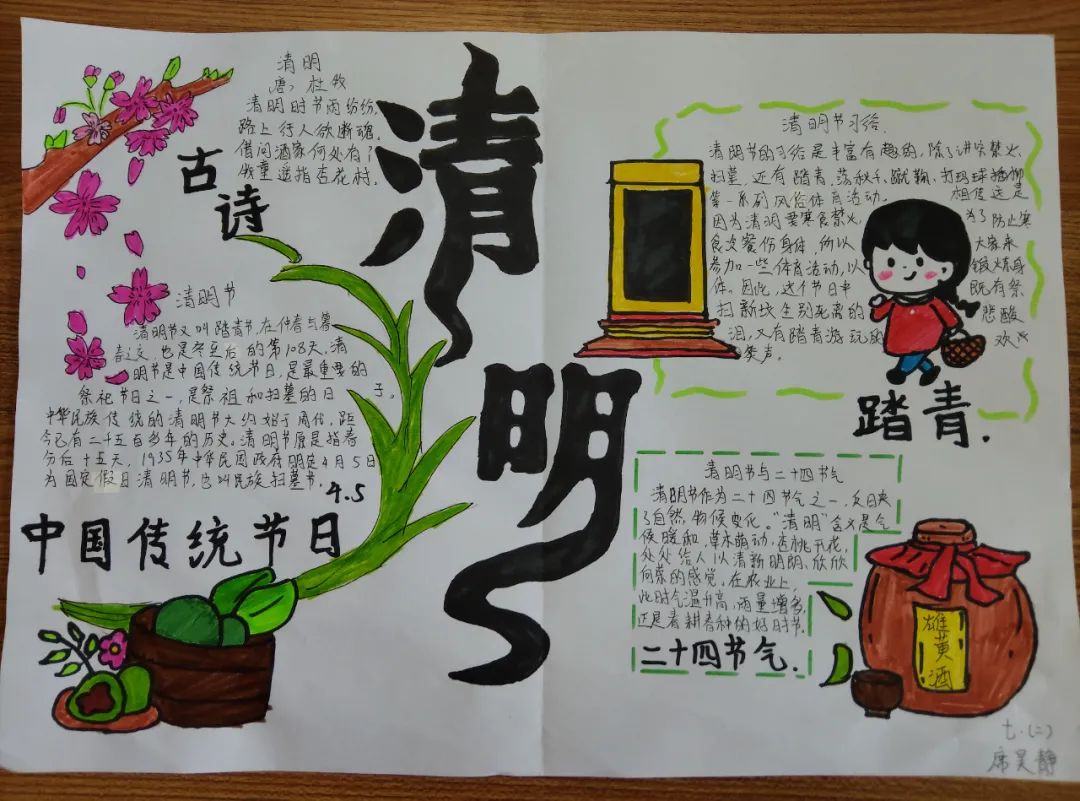 清明
唐，杜牧
清明时节雨纷纷，
路上行人欲断魂。
借问酒家何处有？
牧童遥指杏花村。
古诗
清明
清明节
清明节又叫踏青节，在仲春与暮
春之交，也是冬至后的第108天。清
明节是中国传统节日，是最重要的
祭祀节日之一，是祭祖和扫墓的日子。
中华民族传统的清明节大约始于周代，距
今已有二千五百多年的历史。清明节原是指春
分后十五天，1935年中华民国政府明定4月5日
为国定假日清明节，也叫民族扫墓节。
4.5
中国传统节日
清明节习俗
清明节的习俗是丰富有趣的，除了讲究禁火、
扫墓，还有踏青、荡秋千、蹴鞠、打马球、插柳
等一系列风俗体育活动。相传这是
因为清明要寒食禁火，为了防止寒
食冷餐伤身体，所以大家来
参加一些体育活动，以锻炼身
体。因此，这个节日中既有祭
扫新坟生别死离的悲酸
泪，又有踏青游玩的欢
笑声。
踏青.
清明节与二十四节气
清明节作为二十四节气之一，反映
了自然物候变化。“清明”含义是气
候暖和，草木萌动，杏桃开花，
处处给人以清新明朗、欣欣
向荣的感觉，在农业上，
此时气温升高，雨量增多，
正是春耕春种的好时节.
二十四节气.
雄黄酒
七.(二)
席昊静